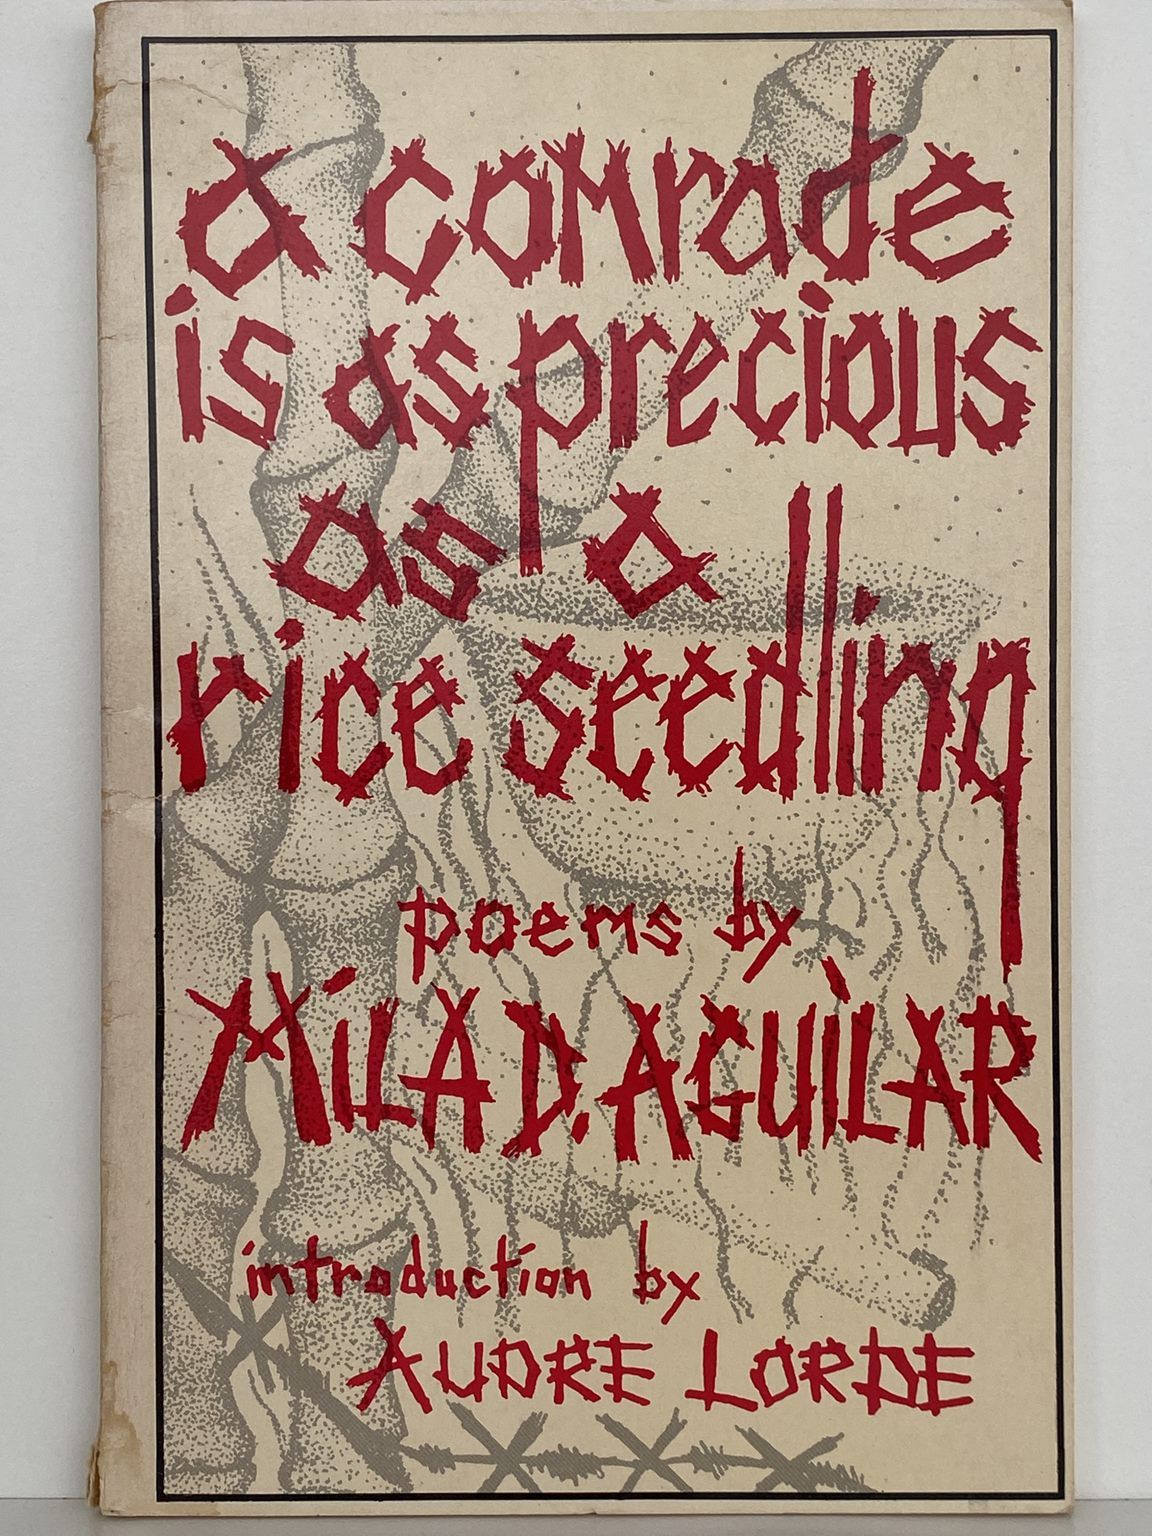 a comrade
is as precious
as a
rice seedling
poems by
MiLA D. AGUiLAR
introduction by
AUDRE LORDE